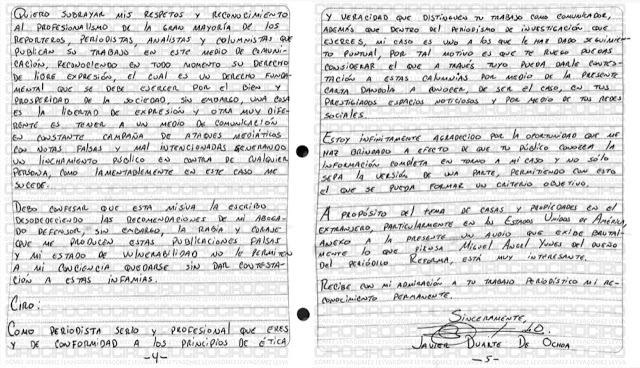 QUIERO SUBRAYAR MIS RESPETOS Y RECONOCIMIENTO
AL PROFESIONALISMO DE LA GRAN MAYORÍA DE LOS
REPORTEROS, PERIODISTAS, ANALISTAS Y COLUMNISTAS QUE
PUBLICAN SU TRABAJO EN ESTE MEDIO DE COMUNI-
CACIÓN, RECONOCIENDO EN TODO MOMENTO SU DERECHO
DE LIBRE EXPRESIÓN, EL CUAL ES UN DERECHO FUNDA-
MENTAL QUE SE DEBE EJERCER POR EL BIEN Y
PROSPERIDAD DE LA SOCIEDAD, SIN EMBARGO, UNA COSA
ES LA LIBERTAD DE EXPRESIÓN Y OTRA MUY DIFE-
RENTE ES TENER A UN MEDIO DE COMUNICACIÓN
EN CONSTANTE CAMPAÑA DE ATAQUES MEDIÁTICOS
CON NOTAS FALSAS Y MAL INTENCIONADAS GENERANDO
UN LINCHAMIENTO PÚBLICO EN CONTRA DE CUALQUIER
PERSONA, COMO LAMENTABLEMENTE EN ESTE CASO ME
SUCEDE.
DEBO CONFESAR QUE ESTA MISIVA LA ESCRIBO
DESOBEDECIENDO LAS RECOMENDACIONES DE MI ABOGA-
DO DEFENSOR, SIN EMBARGO, LA RABIA Y CORAJE
QUE ME PRODUCEN ESTAS PUBLICACIONES FALSAS
Y MI ESTADO DE VULNERABILIDAD NO LE PERMITEN
A MI CONCIENCIA QUEDARSE SIN DAR CONTESTA-
CIÓN A ESTAS INFAMIAS.
CIRO:
COMO PERIODISTA SERIO Y PROFESIONAL QUE ERES
Y DE CONFORMIDAD A LOS PRINCIPIOS DE ÉTICA
-4-
Y VERACIDAD QUE DISTINGUEN TU TRABAJO COMO COMUNICADOR,
ADEMÁS QUE DENTRO DEL PERIODISMO DE INVESTIGACIÓN QUE
EJERCES, MI CASO ES UNO A LOS QUE LE HAZ DADO SEGUIMIEN-
TO PUNTUAL, POR TAL MOTIVO ES QUE TE RUEGO PUEDAS
CONSIDERAR EL QUE A TRAVÉS TUYO PUEDA DARLE CONTES-
TACIÓN A ESTAS CALUMNIAS POR MEDIO DE LA PRESENTE
CARTA DÁNDOLA A CONOCER, DE SER EL CASO, EN TUS
PRESTIGIADOS ESPACIOS NOTICIOSOS Y POR MEDIO DE TUS REDES
SOCIALES.
ESTOY INFINITAMENTE AGRADECIDO POR LA OPORTUNIDAD QUE ME
HAZ BRINDADO A EFECTO DE QUE TU PÚBLICO CONOZCA LA
INFORMACIÓN COMPLETA EN TORNO A MI CASO Y NO SÓLO
SEPA LA VERSIÓN DE UNA PARTE, PERMITIENDO CON ESTO
EL QUE SE PUEDA FORMAR UN CRITERIO OBJETIVO.
A PROPÓSITO DEL TEMA DE CASAS Y PROPIEDADES EN EL
EXTRANJERO, PARTICULARMENTE EN LOS ESTADOS UNIDOS DE AMÉRICA,
ANEXO A LA PRESENTE UN AUDIO QUE EXIBE BRUTAL-
MENTE LO QUE PIENSA MIGUEL ÁNGEL YUNES DEL DUEÑO
DEL PERIÓDICO REFORMA, ESTÁ MUY INTERESANTE.
RECIBE CON MI ADMIRACIÓN A TU TRABAJO PERIODÍSTICO MI RE-
CONOCIMIENTO PERMANENTE.
SINCERAMENTE,
JAVIER DUARTE DE OCHOA
-5-